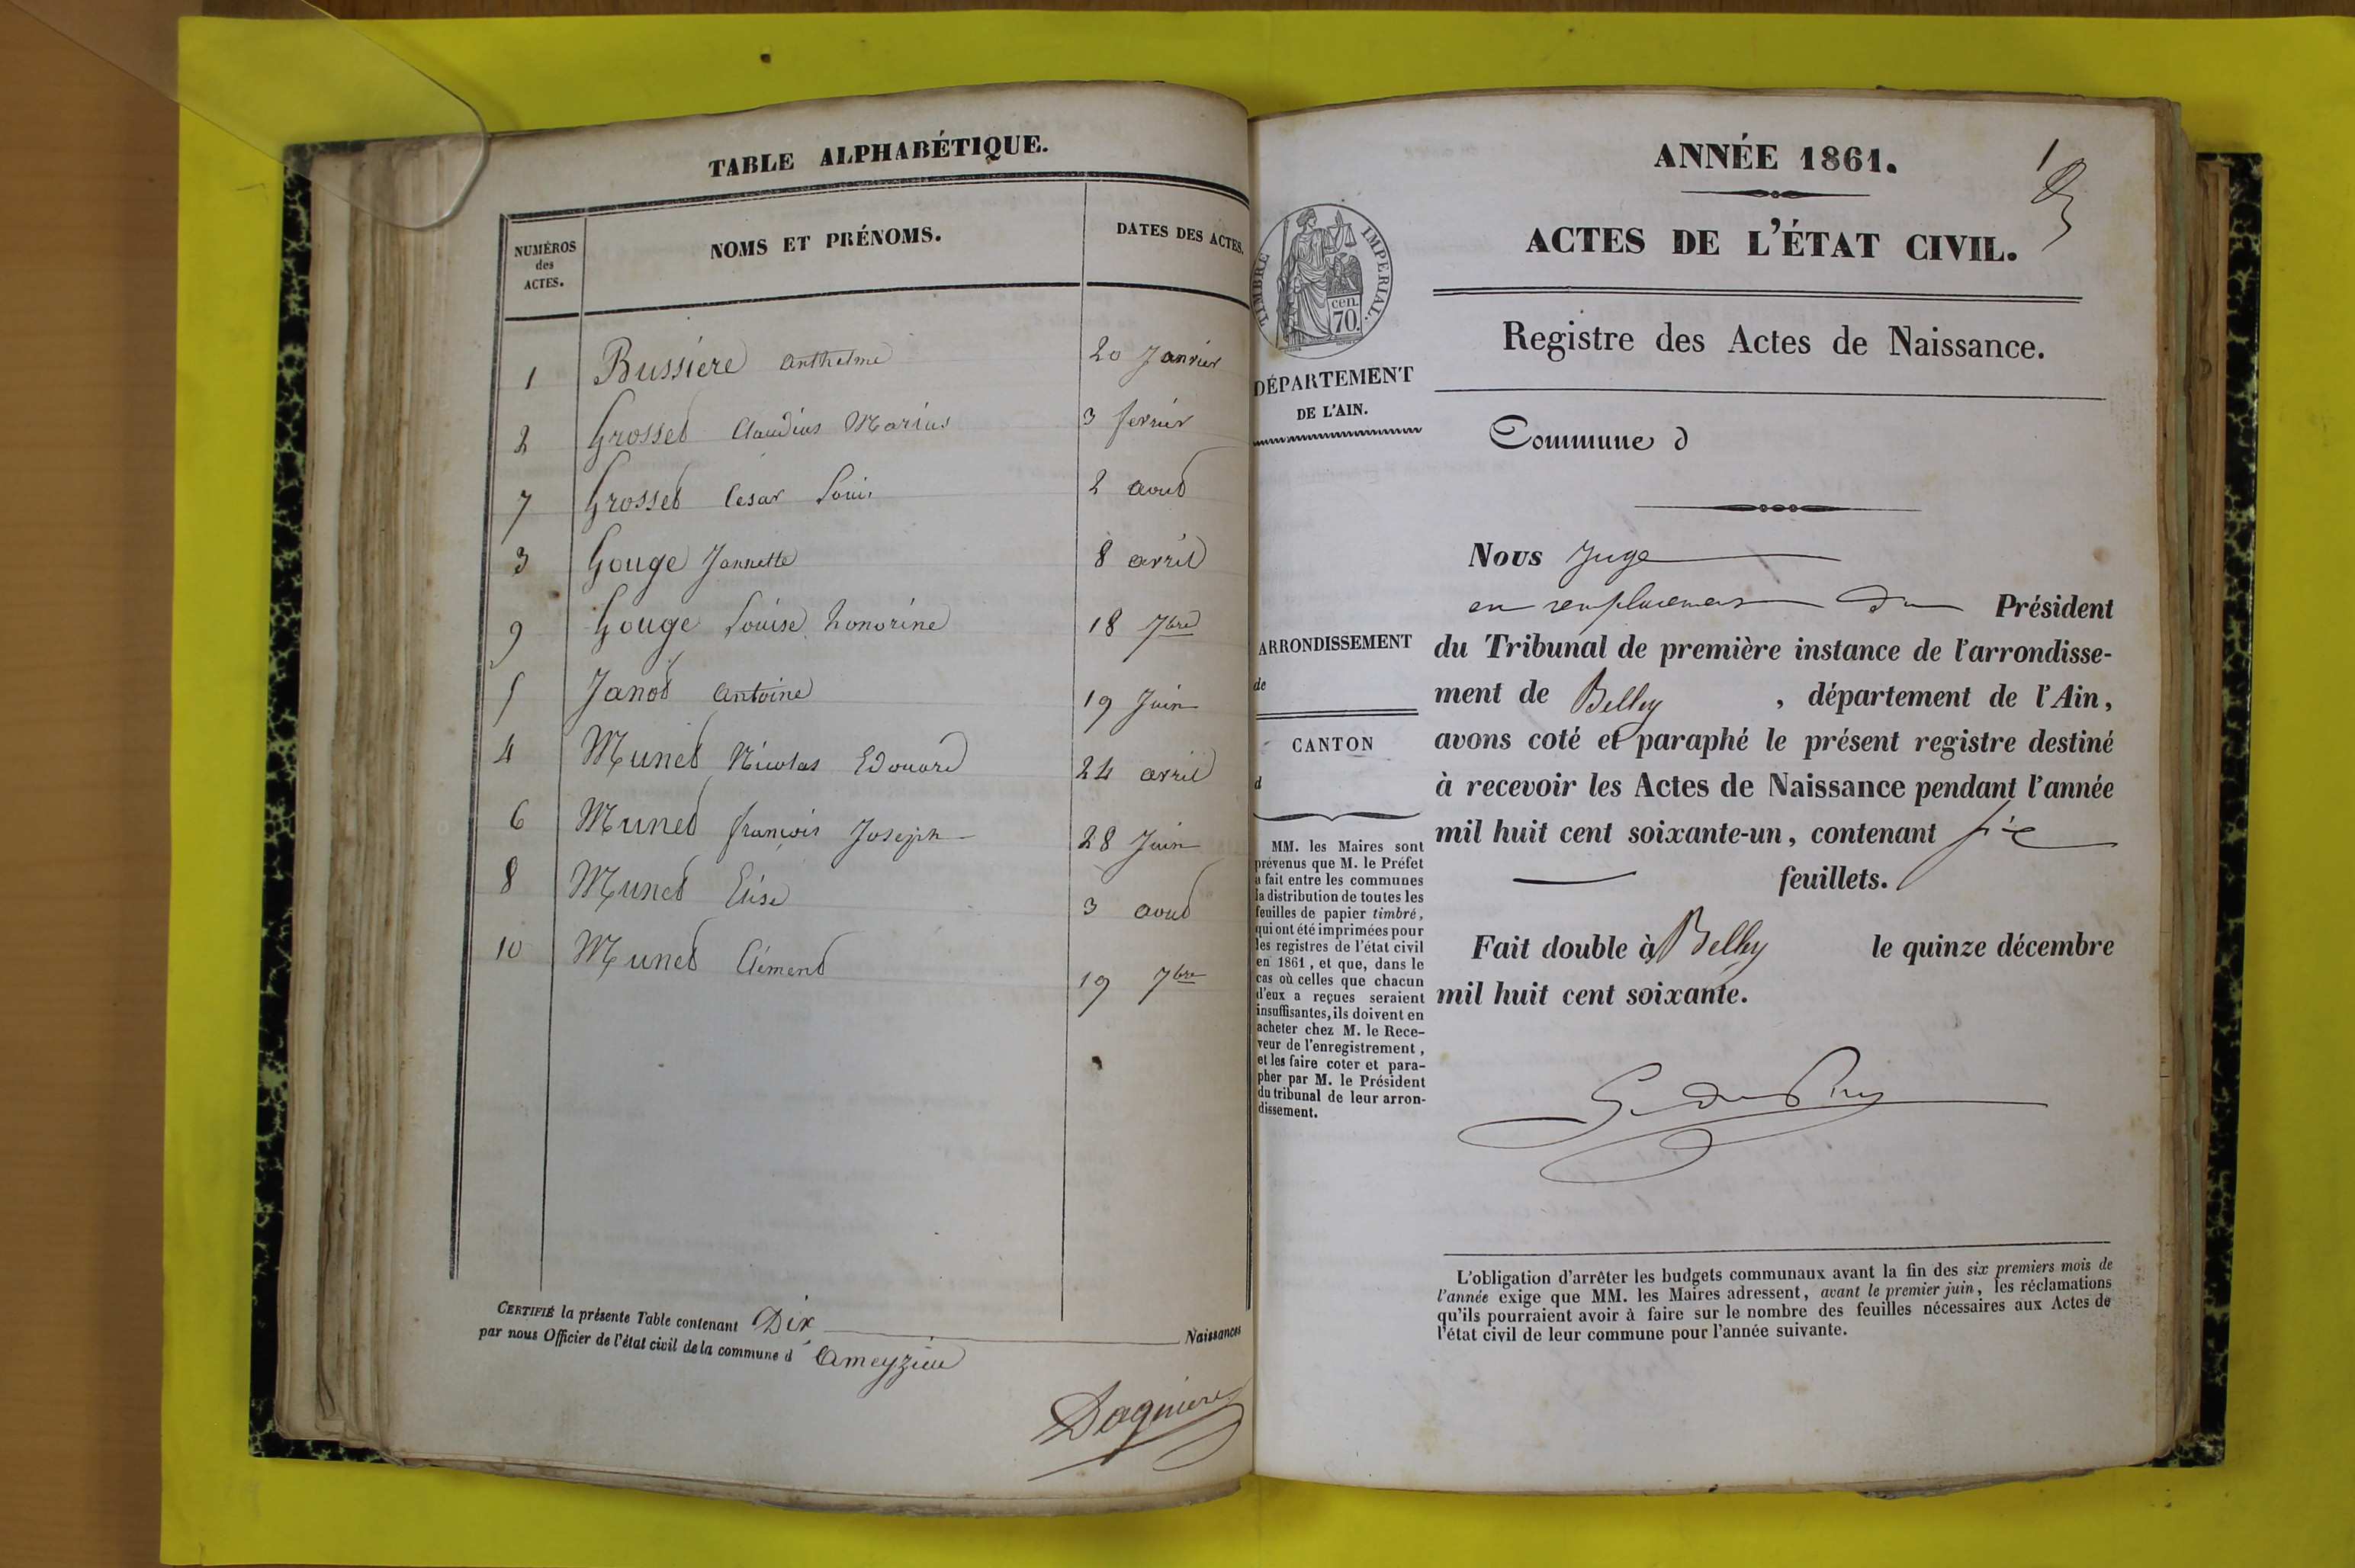 TABLE ALPHABÉTIQUE.
NUMÉROS des ACTES.
NOMS ET PRÉNOMS.
DATES DES ACTES.
1 Bussiere anthelme 20 Janvier
2 Grosset Claudius Marius 3 fevrier
7 Grosset Cesar Louis 2 aout
3 Gouge Jannette 8 avril
9 Gouge Louise honorine 18 7bre
5 Janot antoine 19 Juin
4 Munet Nicolas Edouard 24 avril
6 Munet françois Joseph 28 Juin
8 Munet Elise 3 aout
10 Munet Clément 19 7bre
CERTIFIÉ la présente Table contenant Dix Naissances
par nous Officier de l'état civil de la commune d'Ameyzieu
ANNÉE 1861.
1
ACTES DE L'ÉTAT CIVIL.
TIMBRE IMPERIAL.
cen.
70.
Registre des Actes de Naissance.
DÉPARTEMENT
DE L'AIN.
Commune d
Nous Juge
en remplacement du Président
ARRONDISSEMENT
de
du Tribunal de première instance de l'arrondisse-
ment de Belley, département de l'Ain,
CANTON
d
avons coté et paraphé le présent registre destiné
à recevoir les Actes de Naissance pendant l'année
mil huit cent soixante-un, contenant six
feuillets.
MM. les Maires sont
prévenus que M. le Préfet
a fait entre les communes
la distribution de toutes les
feuilles de papier timbré,
qui ont été imprimées pour
les registres de l'état civil
en 1861, et que, dans le
cas où celles que chacun
d'eux a reçues seraient
insuffisantes, ils doivent en
acheter chez M. le Rece-
veur de l'enregistrement,
et les faire coter et para-
pher par M. le Président
du tribunal de leur arron-
dissement.
Fait double à Belley le quinze décembre
mil huit cent soixante.
L'obligation d'arrêter les budgets communaux avant la fin des six premiers mois de
l'année exige que MM. les Maires adressent, avant le premier juin, les réclamations
qu'ils pourraient avoir à faire sur le nombre des feuilles nécessaires aux Actes de
l'état civil de leur commune pour l'année suivante.